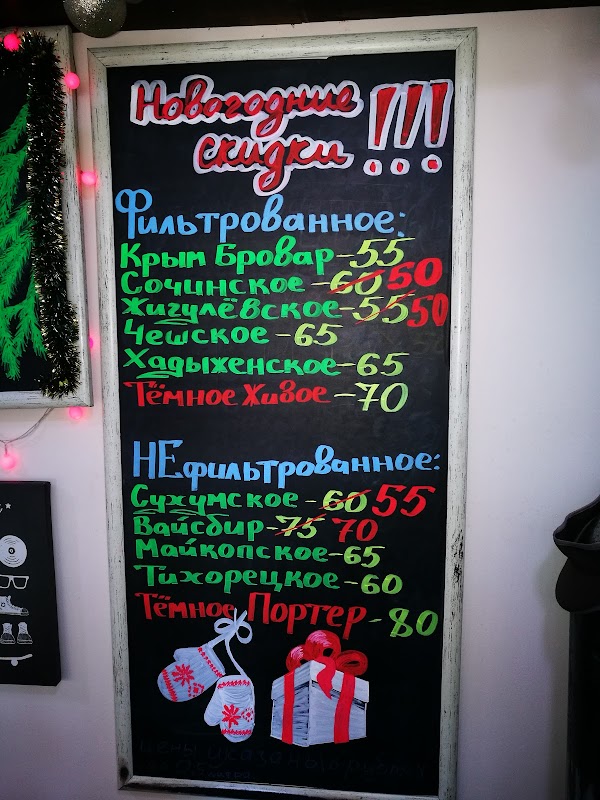 Новогодние !!!
скидки
Фильтрованное:
Крым Бровар - 55
Сочинское - 60 50
Жигулёвское - 55 50
Чешское - 65
Хадыженское - 65
Тёмное Живое - 70
НЕфильтрованное:
Сухумское - 60 55
Вайсбир - 75 70
Майкопское - 65
Тихорецкое - 60
Тёмное Портер - 80
цены указаны